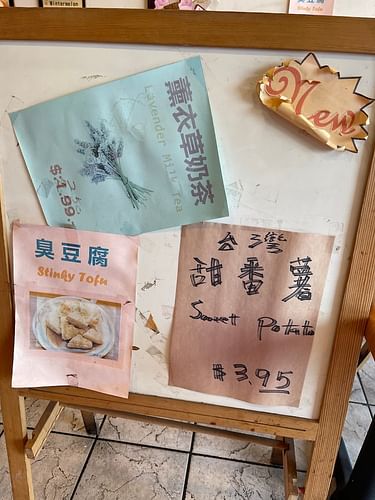 Wintermelon
臭豆腐
Stinky Tofu
New
薰衣草奶茶
Lavender Milk Tea
$4.99
臭豆腐
Stinky Tofu
台灣
甜番薯
Sweet Potato
$3.95